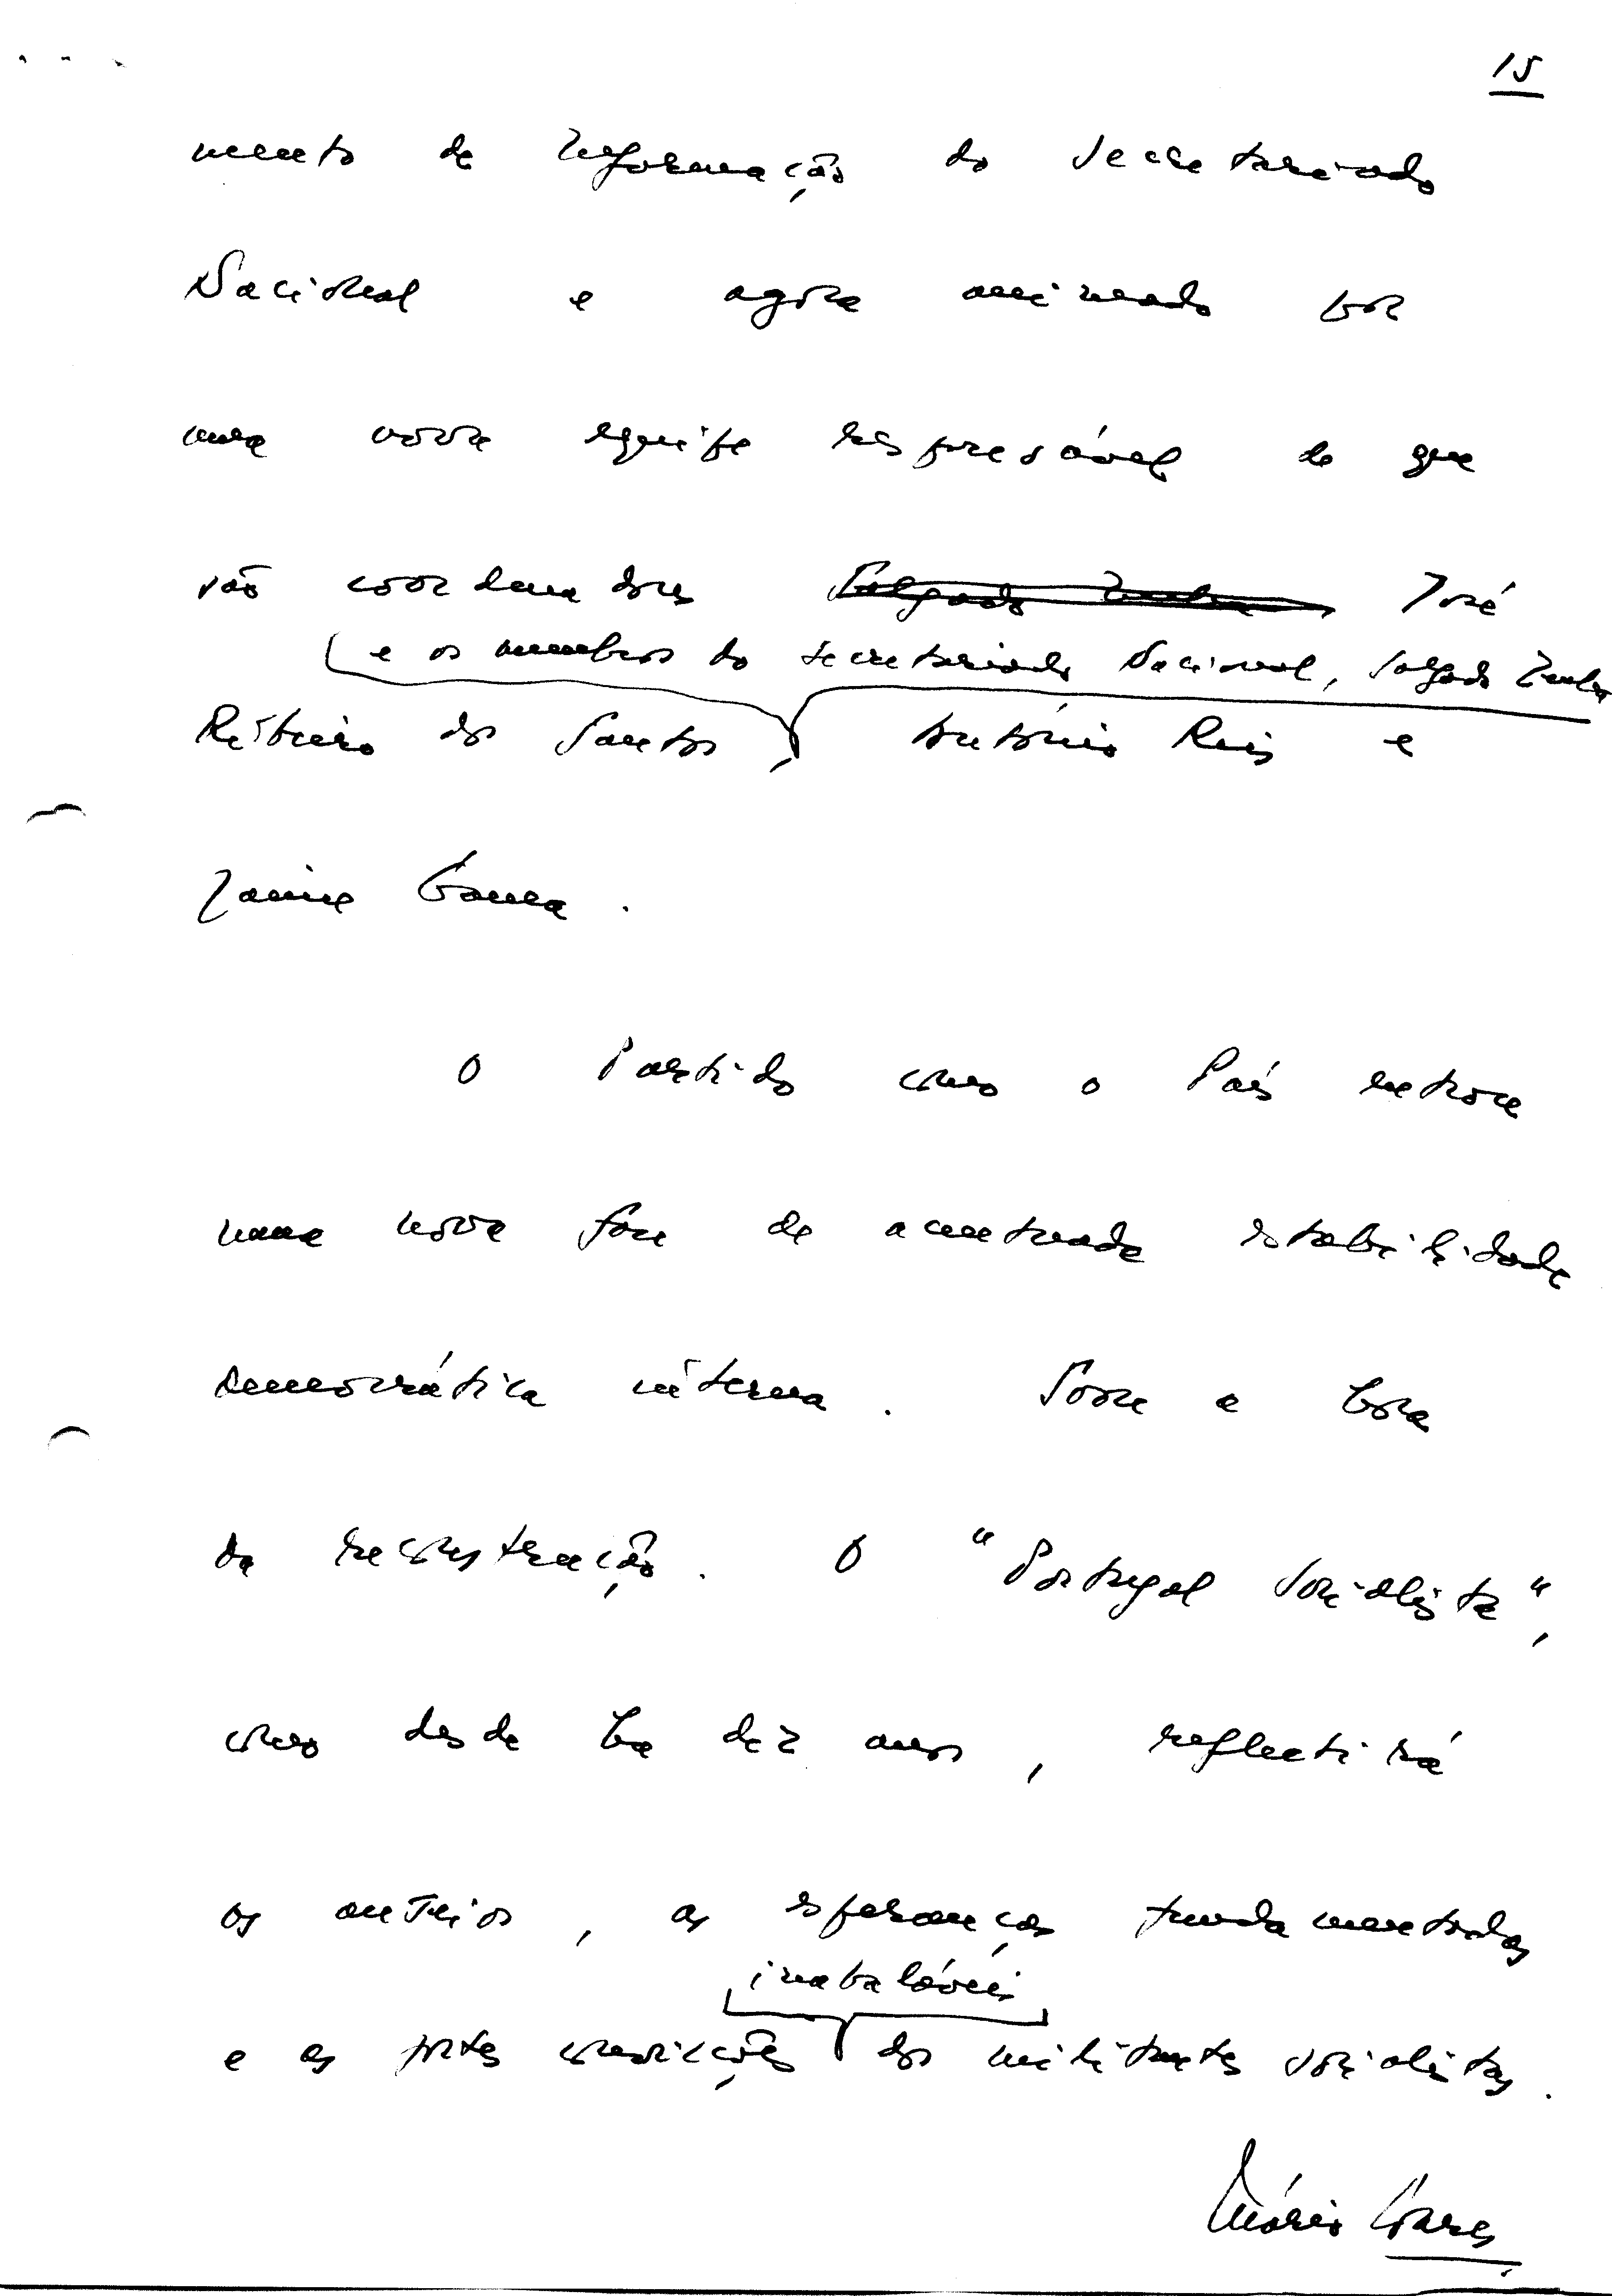 15
mento de Informação do Secretariado
Nacional e agora animado por
uma nova equipe responsável de que
são coordenadores Salgado Zenha José
e os membros do Secretariado Nacional, Salgado Zenha
Ribeiro dos Santos, António Reis e
Jaime Gama.
O Partido como o País entrou
numa nova fase de acentuada estabilidade
democrática interna. Soou a hora
da reconstrução. O "Portugal Socialista",
como desde há dez anos, reflectirá
os anseios, as esperanças fundamentadas
inabaláveis
e as fortes convicções dos militantes socialistas.
Mário Soares